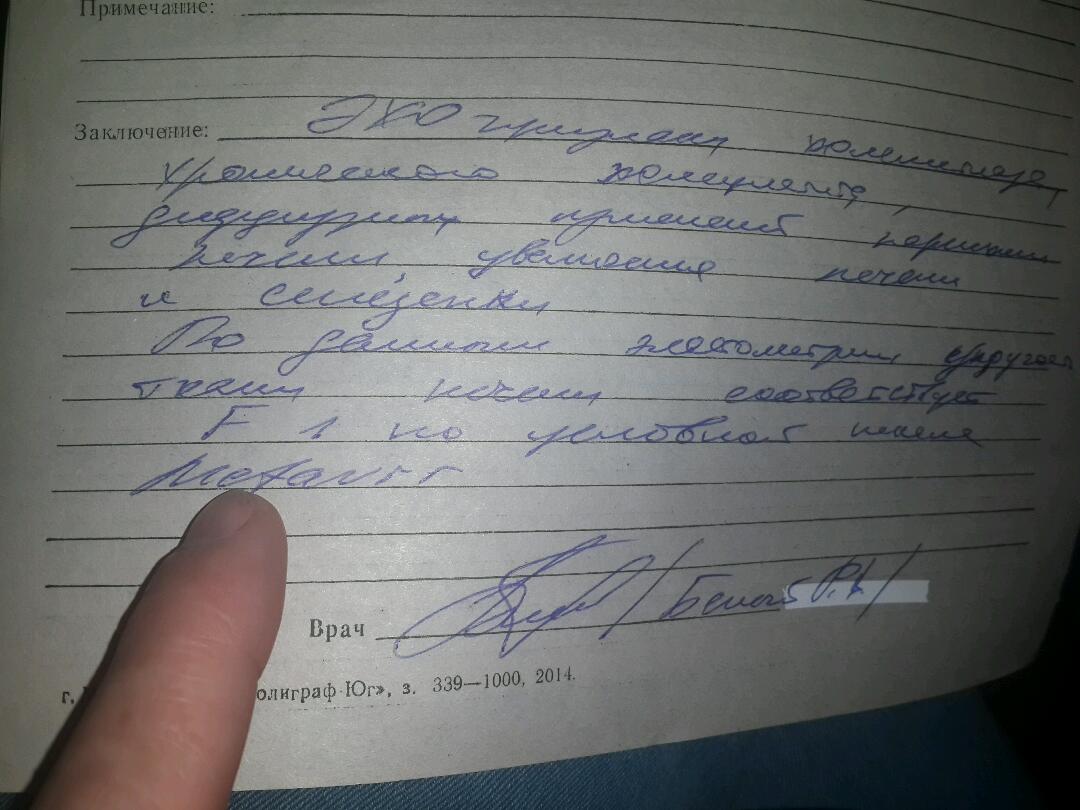 Примечание:
Заключение: ЭХО признаки холестаза,
хронического холецистита,
диффузных изменений паренхимы
печени, увеличения печени
и селезенки
По данным эластометрии упругость
ткани печени соответствует
F 1 по условной шкале
Metavir
Врач
г. олиграф-Юг», з. 339—1000, 2014.